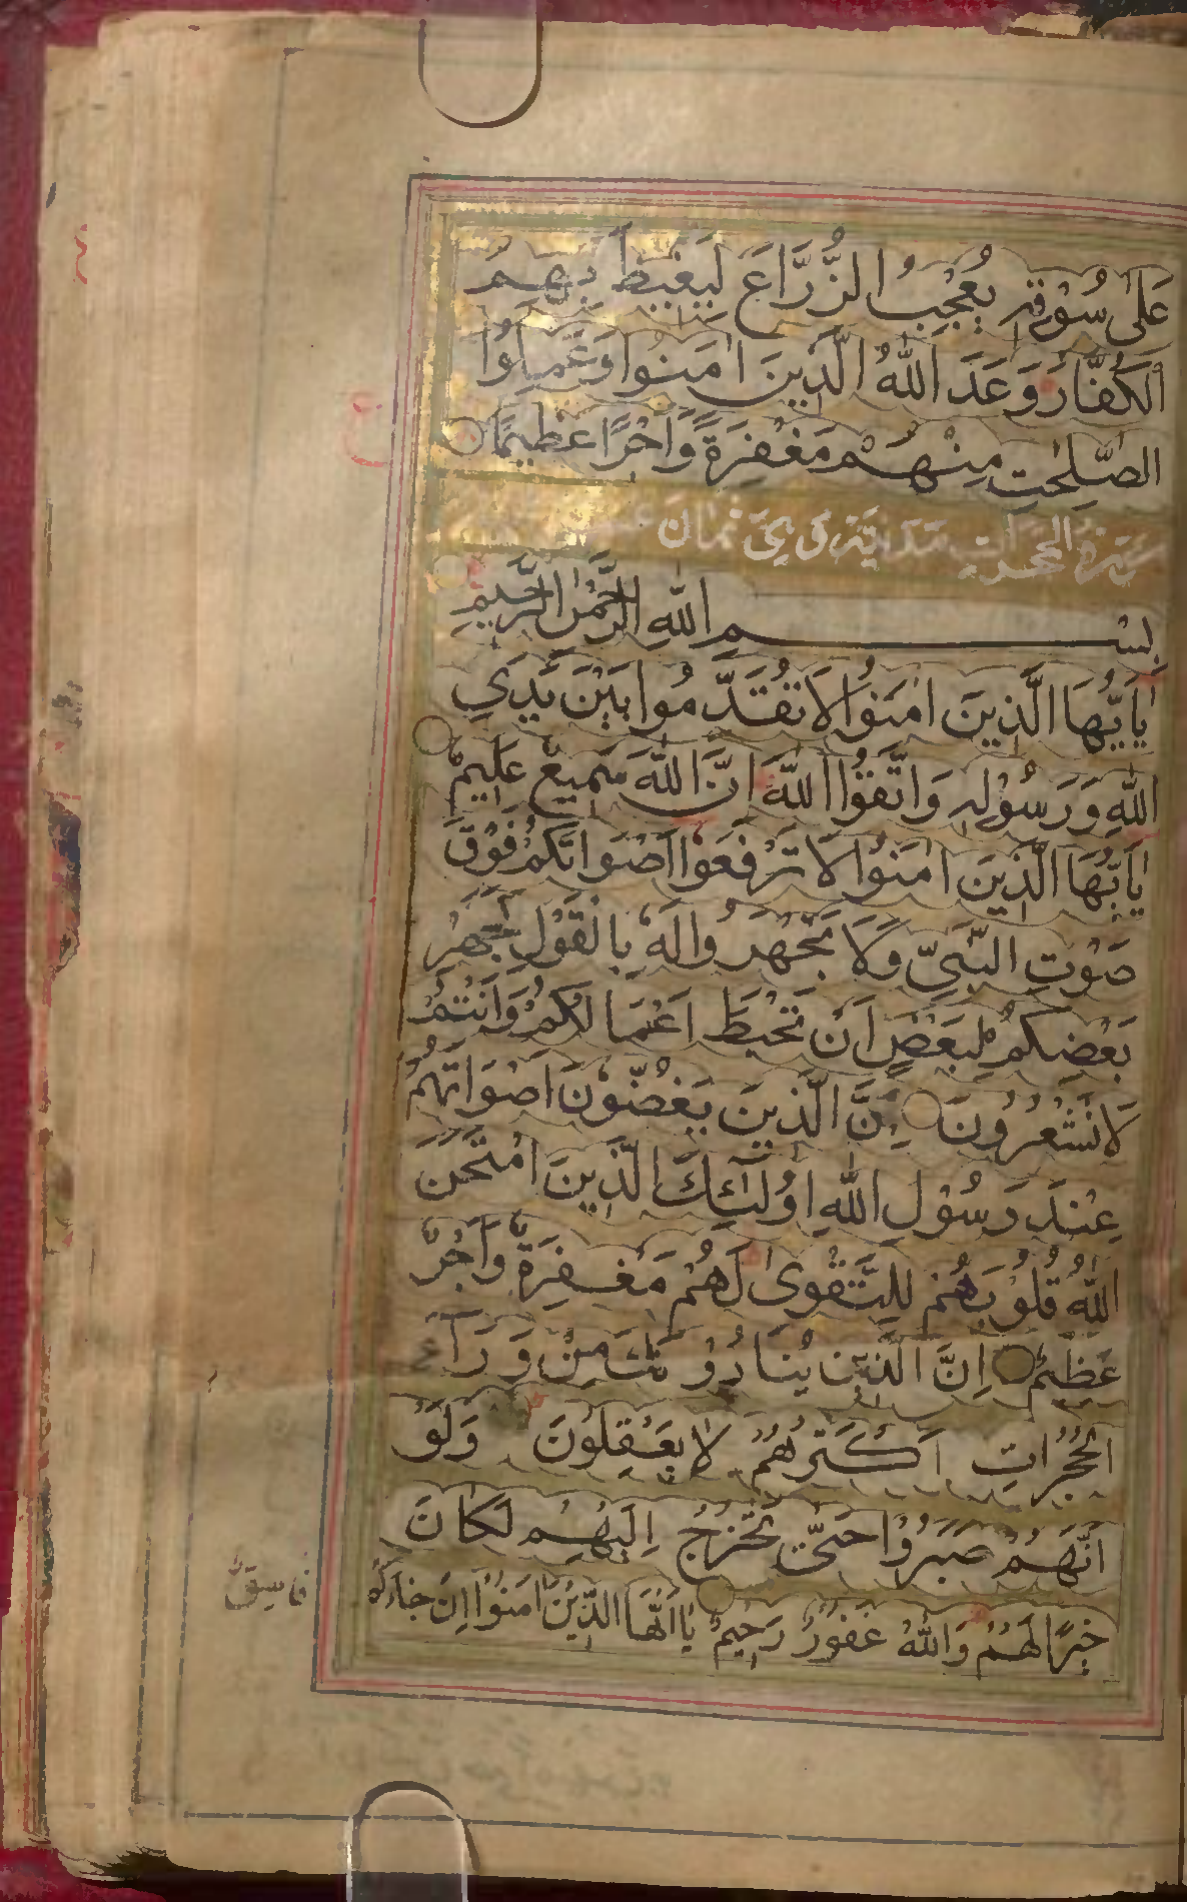 عَلٰى سُوْقِهٖ يُعْجِبُ الزُّرَّاعَ لِيَغِيْظَ بِهِمُ
الْكُفَّارَ وَعَدَ اللّٰهُ الَّذِيْنَ اٰمَنُوْا وَعَمِلُوا
الصّٰلِحٰتِ مِنْهُمْ مَغْفِرَةً وَّاَجْرًا عَظِيْمًا
سورة الحجرات مدنية وهي ثمان
بِسْمِ اللّٰهِ الرَّحْمٰنِ الرَّحِيْمِ
يٰاَيُّهَا الَّذِيْنَ اٰمَنُوْا لَا تُقَدِّمُوا بَيْنَ يَدَيِ
اللّٰهِ وَرَسُوْلِهٖ وَاتَّقُوا اللّٰهَ اِنَّ اللّٰهَ سَمِيْعٌ عَلِيْمٌ
يٰاَيُّهَا الَّذِيْنَ اٰمَنُوْا لَا تَرْفَعُوْا اَصْوَاتَكُمْ فَوْقَ
صَوْتِ النَّبِيِّ وَلَا تَجْهَرُوا لَهٗ بِالْقَوْلِ كَجَهْرِ
بَعْضِكُمْ لِبَعْضٍ اَنْ تَحْبَطَ اَعْمَالُكُمْ وَاَنْتُمْ
لَا تَشْعُرُوْنَ اِنَّ الَّذِيْنَ يَغُضُّوْنَ اَصْوَاتَهُمْ
عِنْدَ رَسُوْلِ اللّٰهِ اُولٰئِكَ الَّذِيْنَ امْتَحَنَ
اللّٰهُ قُلُوْبَهُمْ لِلتَّقْوٰى لَهُمْ مَغْفِرَةٌ وَّاَجْرٌ
عَظِيْمٌ اِنَّ الَّذِيْنَ يُنَادُوْنَكَ مِنْ وَرَاۤءِ
الْحُجُرَاتِ اَكْثَرُهُمْ لَا يَعْقِلُوْنَ وَلَوْ
اَنَّهُمْ صَبَرُوْا حَتّٰى تَخْرُجَ اِلَيْهِمْ لَكَانَ
خَيْرًا لَهُمْ وَاللّٰهُ غَفُوْرٌ رَحِيْمٌ يٰاَيُّهَا الَّذِيْنَ اٰمَنُوْا اِنْ جَاۤءَكُمْ
فَاسِقٌ